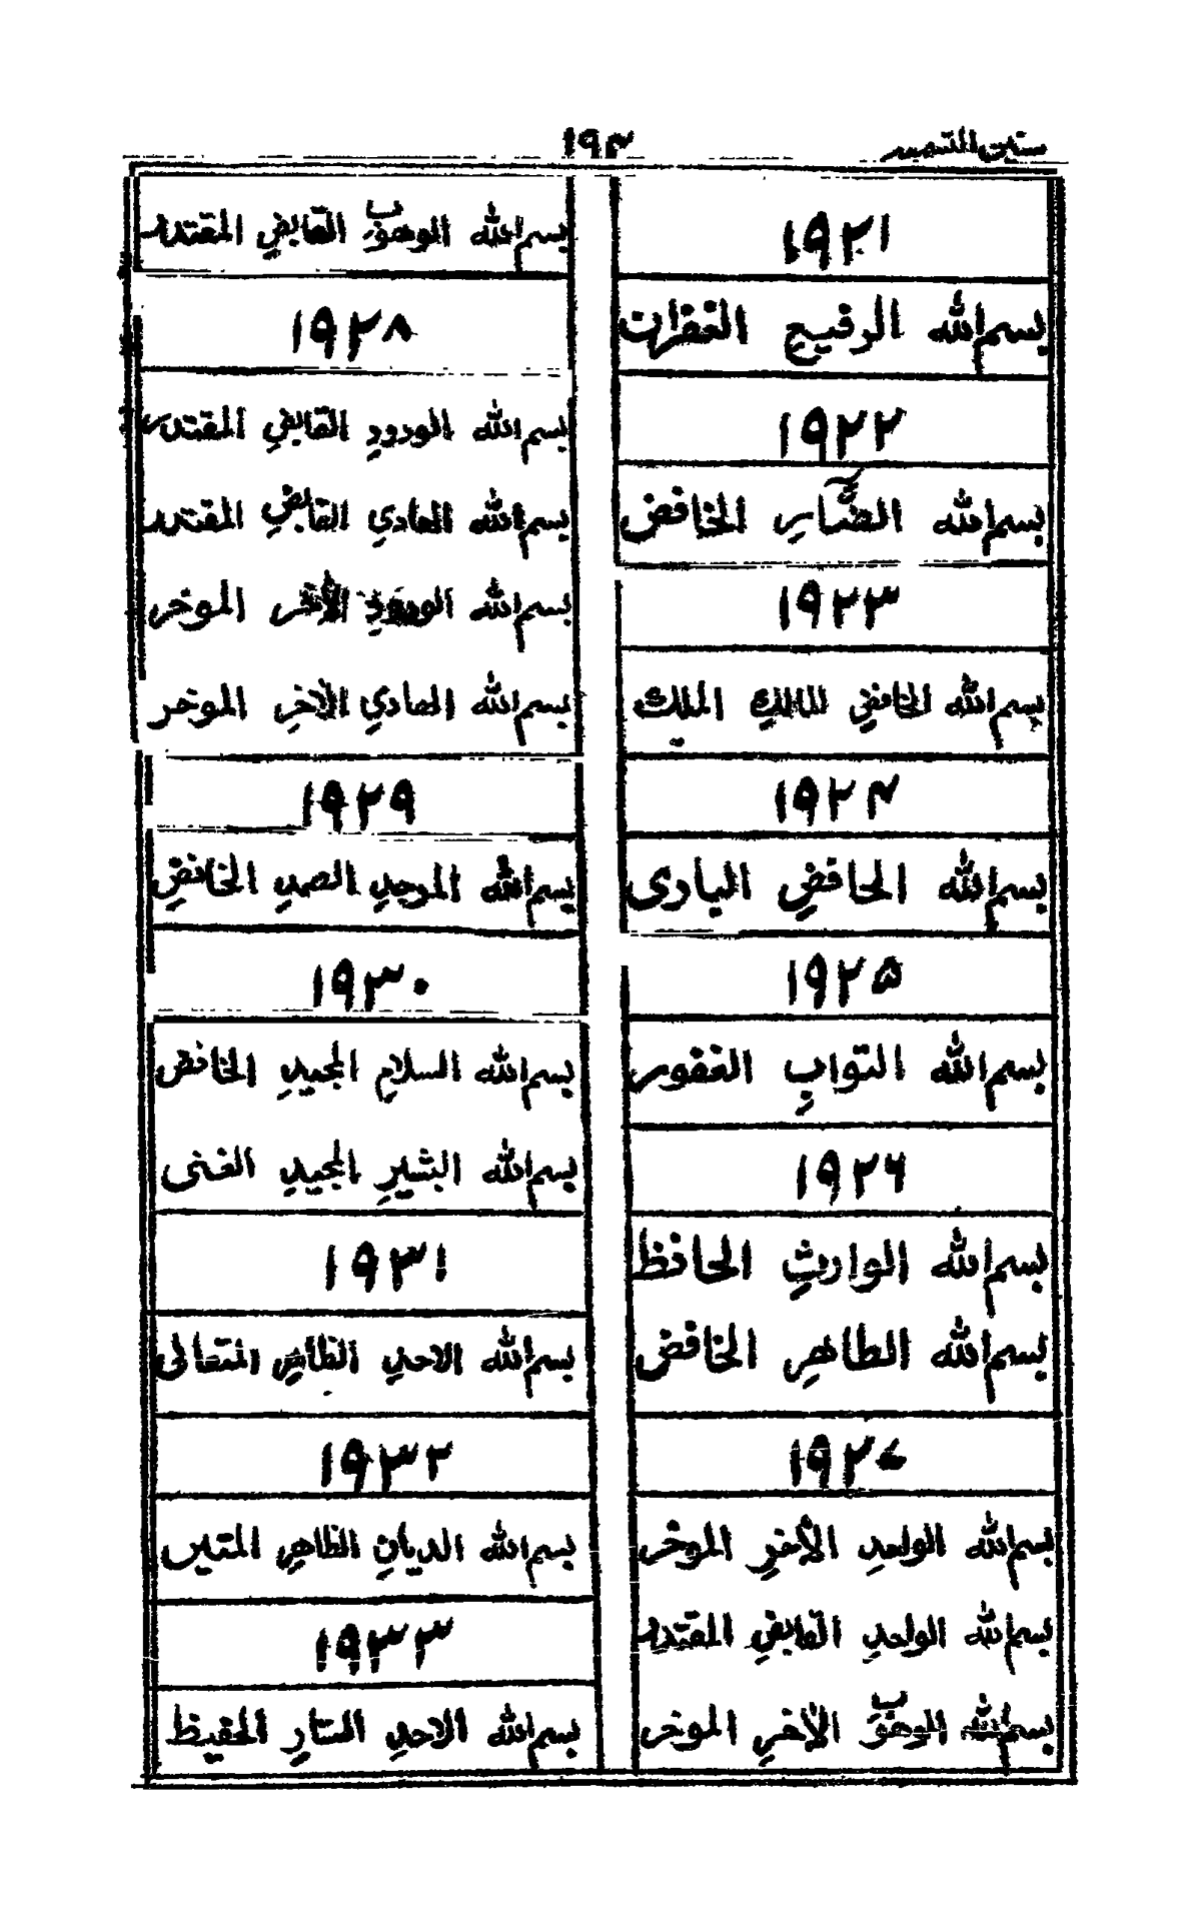 ١٩٢
١٩٢١
بسم الله الرفيع الغفران
١٩٢٢
بسم الله الضّار الخافض
١٩٢٣
بسم الله الخافض المالكِ الملك
١٩٢٤
بسم الله الحافضِ البادى
١٩٢٥
بسم الله التوابِ الغفور
١٩٢٦
بسم الله الوارثِ الحافظ
بسم الله الطاهرِ الخافض
١٩٢٧
بسم الله الواحدِ الأخرِ الموخر
بسم الله الواحدِ القابضِ المقتدر
بسم الله الوهوب الأخرِ الموخر
بسم الله الوهوب القابضِ المقتدر
١٩٢٨
بسم الله الودودِ القابضِ المقتدر
بسم الله الهادي القابضِ المقتدر
بسم الله الودودِ الأخر الموخر
بسم الله الهادي الآخرِ الموخر
١٩٢٩
بسم الله الموحدِ الصمدِ الخافضِ
١٩٣٠
بسم الله السلامِ المجيدِ الخافض
بسم الله البشيرِ المجيدِ الغنى
١٩٣١
بسم الله الاحدِ الظاهرِ المتعالى
١٩٣٢
بسم الله الديانِ الظاهرِ المتين
١٩٣٣
بسم الله الاحدِ الستارِ الحفيظ